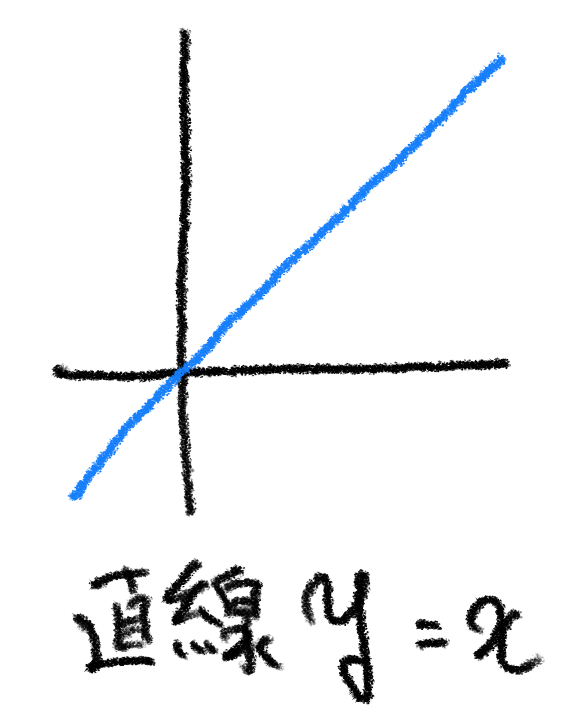 直線 y = x